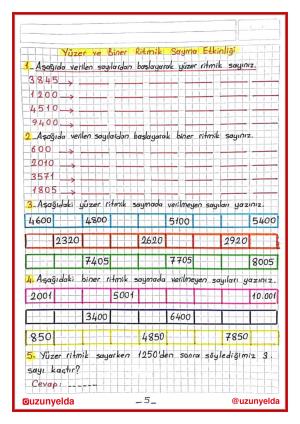 Yüzer ve Biner Ritmik Sayma Etkinliği
1_ Aşağıda verilen sayılardan başlayarak yüzer ritmik sayınız.
3845→
1200→
4510→
9400→
2_ Aşağıda verilen sayılardan başlayarak biner ritmik sayınız.
600 →
2010 →
3571 →
1805 →
3_ Aşağıdaki yüzer ritmik saymada verilmeyen sayıları yazınız.
4600 4800 5100 5400
2320 2620 2920
7405 7705 8005
4_ Aşağıdaki biner ritmik saymada verilmeyen sayıları yazınız.
2001 5001 10.001
3400 6400
850 4850 7850
5_ Yüzer ritmik sayarken 1250'den sonra söylediğimiz 3.
sayı kaçtır?
Cevap: ______
@uzunyelda _5_ @uzunyelda